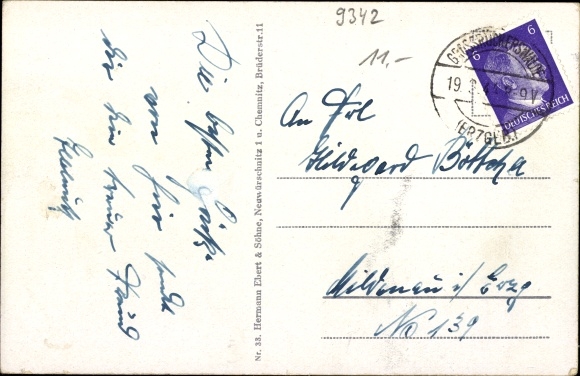 9342
11,-
Die besten Grüße
von hier sendet
dir dein treuer Freund
Hellmut
Nr. 33. Hermann Ebert & Söhne, Neuwürschnitz 1 u. Chemnitz, Brüderstr. 11
GROSSRÜCKERSWALDE
19.
(ERZGEB.)
6 6
DEUTSCHES REICH
An Frl
Hildegard Böttcher
Mildenau i/ Erzg
No 139